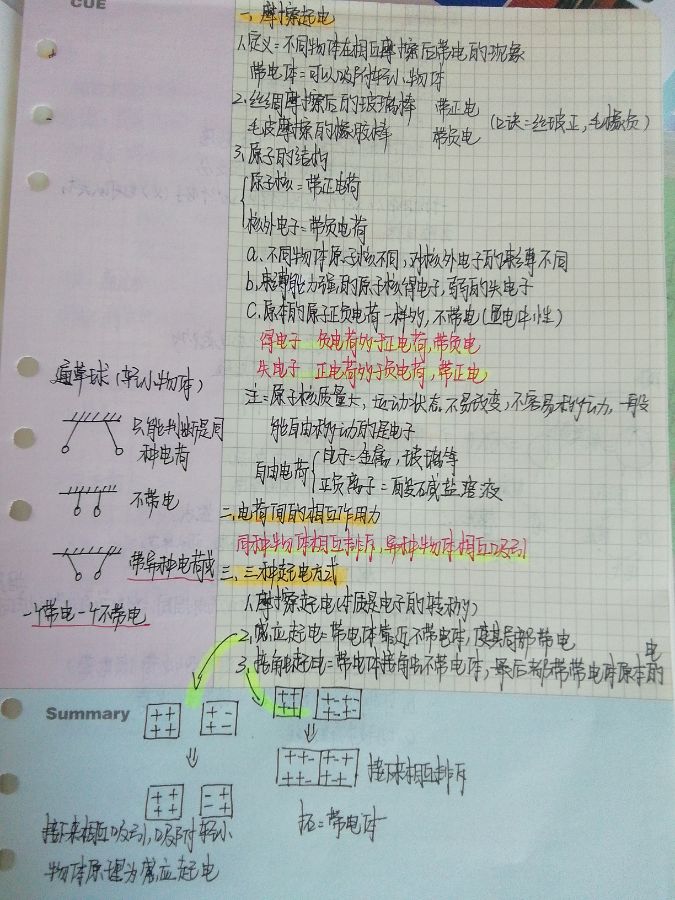 CUE
一、摩擦起电
1.定义=不同物体在相互摩擦后带电的现象
带电体=可以吸附轻小物体
2.丝绸摩擦后的玻璃棒 带正电
毛皮摩擦的橡胶棒 带负电 (口诀=丝玻正,毛橡负)
3.原子的结构
原子核=带正电荷
核外电子=带负电荷
a.不同物体原子核不同,对核外电子的束缚不同
b.束缚能力强的原子核得电子,弱的失电子
C.原本的原子正负电荷一样的,不带电(显电中性)
得电子 负电荷多于正电荷,带负电
失电子 正电荷多于负电荷,带正电
注=原子核质量大,运动状态不易改变,不容易移动,一般
能自由移动的是电子
自由电荷 电子=金属,玻璃等
正负离子=酸碱盐溶液
二、电荷间的相互作用力
同种物体相互排斥,异种物体相互吸引
三、三种起电方式
1.摩擦起电(本质是电子的转移)
2.感应起电=带电体靠近不带电体,使其局部带电
3.接触起电=带电体接触不带电体,最后都带带电体原本的电
通草球(轻小物体)
只能判断是同
种电荷
不带电
带异种电荷或
一个带电一个不带电
Summary
++ +-
++ +-
++ -+
++ -+
接下来相互吸引,吸附轻小
物体原理为感应起电
接下来相互排斥
=带电体